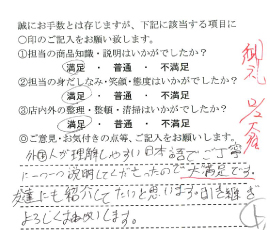 誠にお手数とは存じますが、下記に該当する項目に
〇印のご記入をお願い致します。
①担当の商品知識・説明はいかがでしたか？
満足 ・ 普通 ・ 不満足
②担当の身だしなみ・笑顔・態度はいかがでしたか？
満足 ・ 普通 ・ 不満足
③店内外の整理・整頓・清掃はいかがでしたか？
満足 ・ 普通 ・ 不満足
◎ご意見・お気付きの点等、ご記入をお願いします。
外国人が理解しやすい日本語でご丁寧
に一つ一つ説明してくださったので大満足です。
友達にも紹介したいと思います。引き続き
よろしくお願いします。
御礼